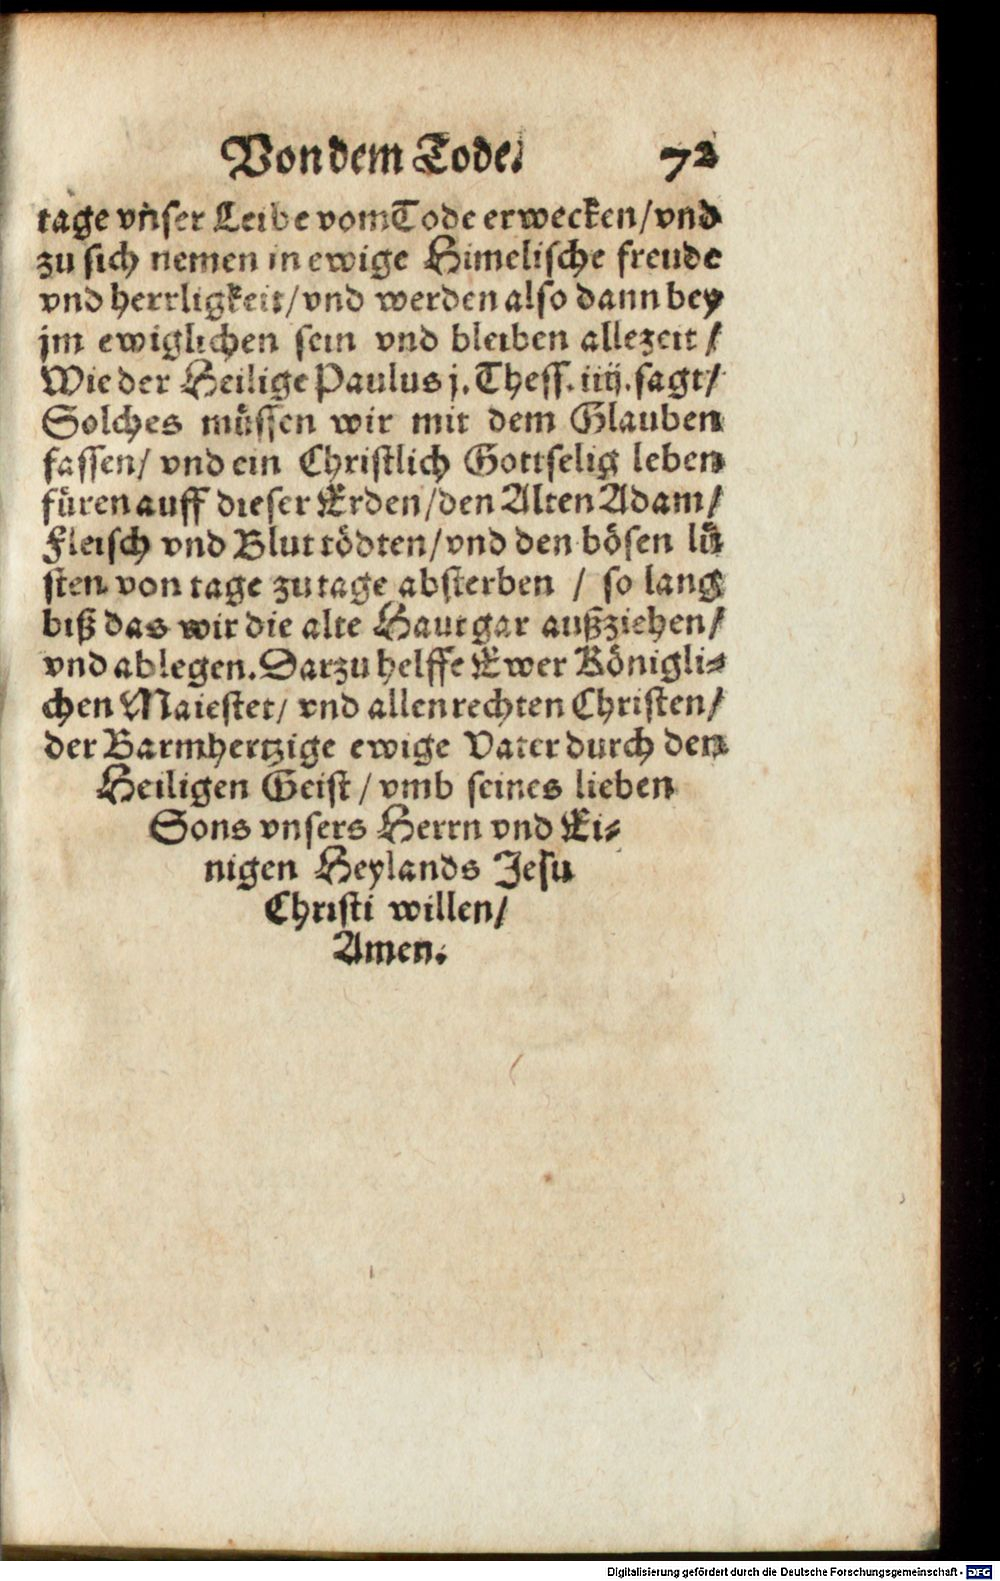 Von dem Tode. 72
tage vnser Leibe vom Tode erwecken/vnd
zu sich nemen in ewige Himelische freude
vnd herrligkeit/vnd werden also dann bey
jm ewiglichen sein vnd bleiben allezeit/
Wie der Heilige Paulus j. Thess. iiij. sagt/
Solches müssen wir mit dem Glauben
fassen/ vnd ein Christlich Gottselig leben
füren auff dieser Erden/den Alten Adam/
Fleisch vnd Blut tödten/vnd den bösen lü
sten von tage zu tage absterben / so lang
biß das wir die alte Haut gar außziehen/
vnd ablegen. Darzu helffe Ewer Königli-
chen Maiestet/ vnd allen rechten Christen/
der Barmhertzige ewige Vater durch den
Heiligen Geist/ vmb seines lieben
Sons vnsers Herrn vnd Ei-
nigen Heylands Jesu
Christi willen/
Amen.
Digitalisierung gefördert durch die Deutsche Forschungsgemeinschaft - DFG